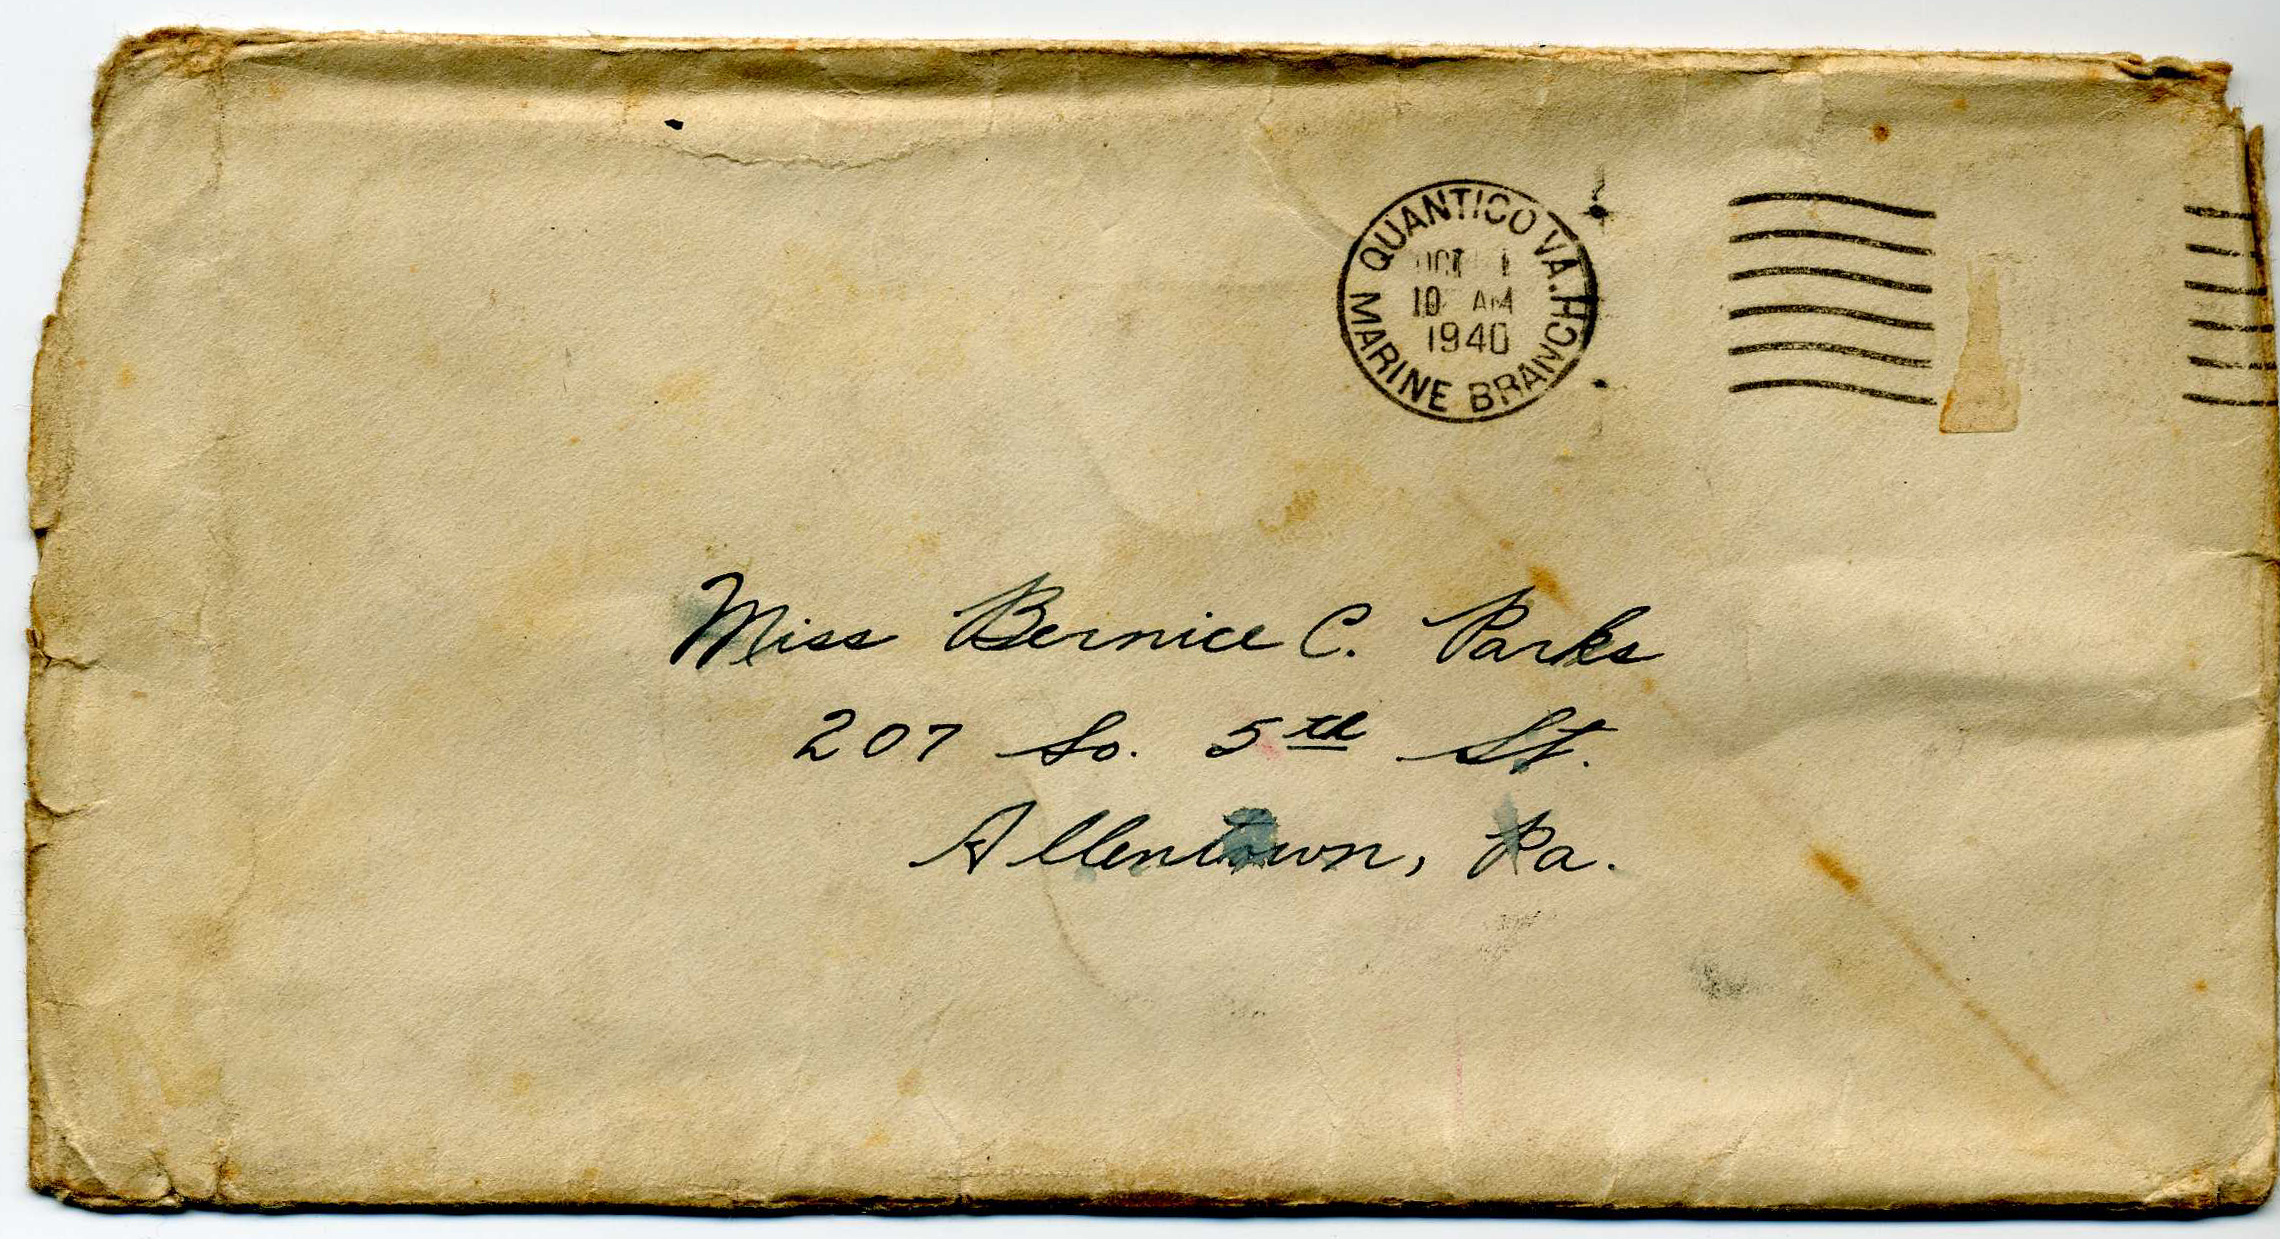 QUANTICO VA.
OCT 1
10 AM
1940
MARINE BRANCH
Miss Bernice C. Parks
207 So. 5th St.
Allentown, Pa.